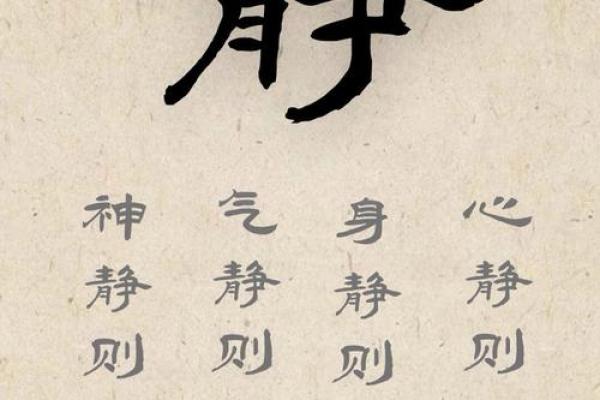 静
心静则
身静则
气静则
神静则